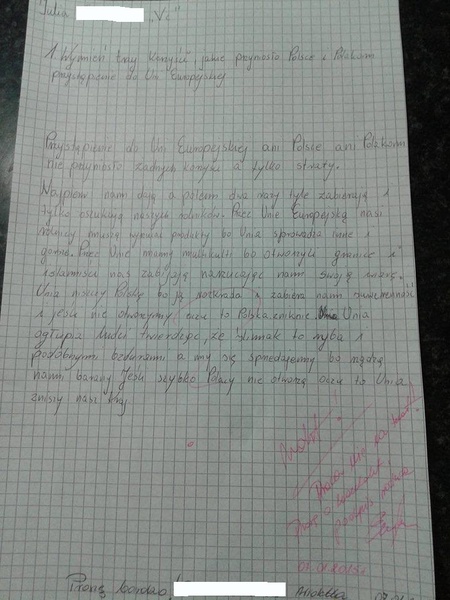 Julia V c"
1. Wymień trzy korzyści, jakie przyniosło Polsce i Polakom
przystąpienie do Unii Europejskiej
Przystąpienie do Unii Europejskiej ani Polsce ani Polakom
nie przyniosło żadnych korzyści a tylko straty.
Najpierw nam dają a potem dwa razy tyle zabierają i
tylko oszukują naszych rolników. Przez Unię Europejską nasi
rolnicy muszą wyrzucać produkty bo Unia sprowadza inne i
gorsze. Przez Unię mamy multikulti bo otworzyli granice i
islamiści nas zabijają narzucając nam swoją wiarę.
Unia niszczy Polskę bo ją rozkrada i zabiera nam suwerenność
i jeśli nie otworzymy oczu to Polska zniknie. Unia
ogłupia ludzi twierdząc, że ślimak to ryba i
podobnymi bzdurami a my się sprzedajemy bo rządzą
nami barany. Jeśli szybko Polacy nie otworzą oczu to Unia
zniszy nasz kraj.
Praca nie na temat!
Proszę o
podpis rodzica
Proszę bardzo!